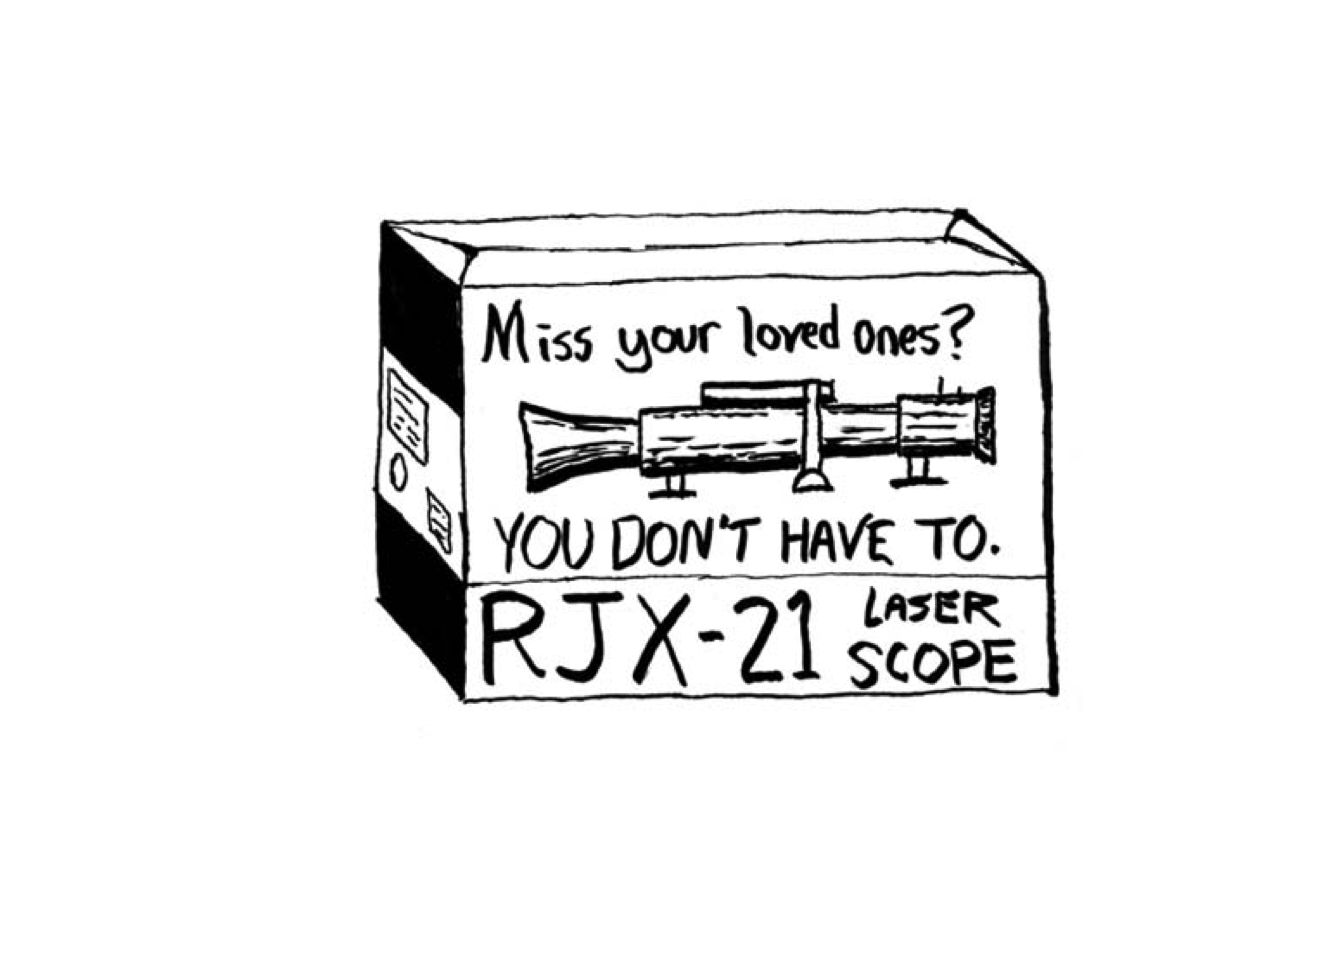 Miss your loved ones?
YOU DON'T HAVE TO.
RJX-21
LASER
SCOPE